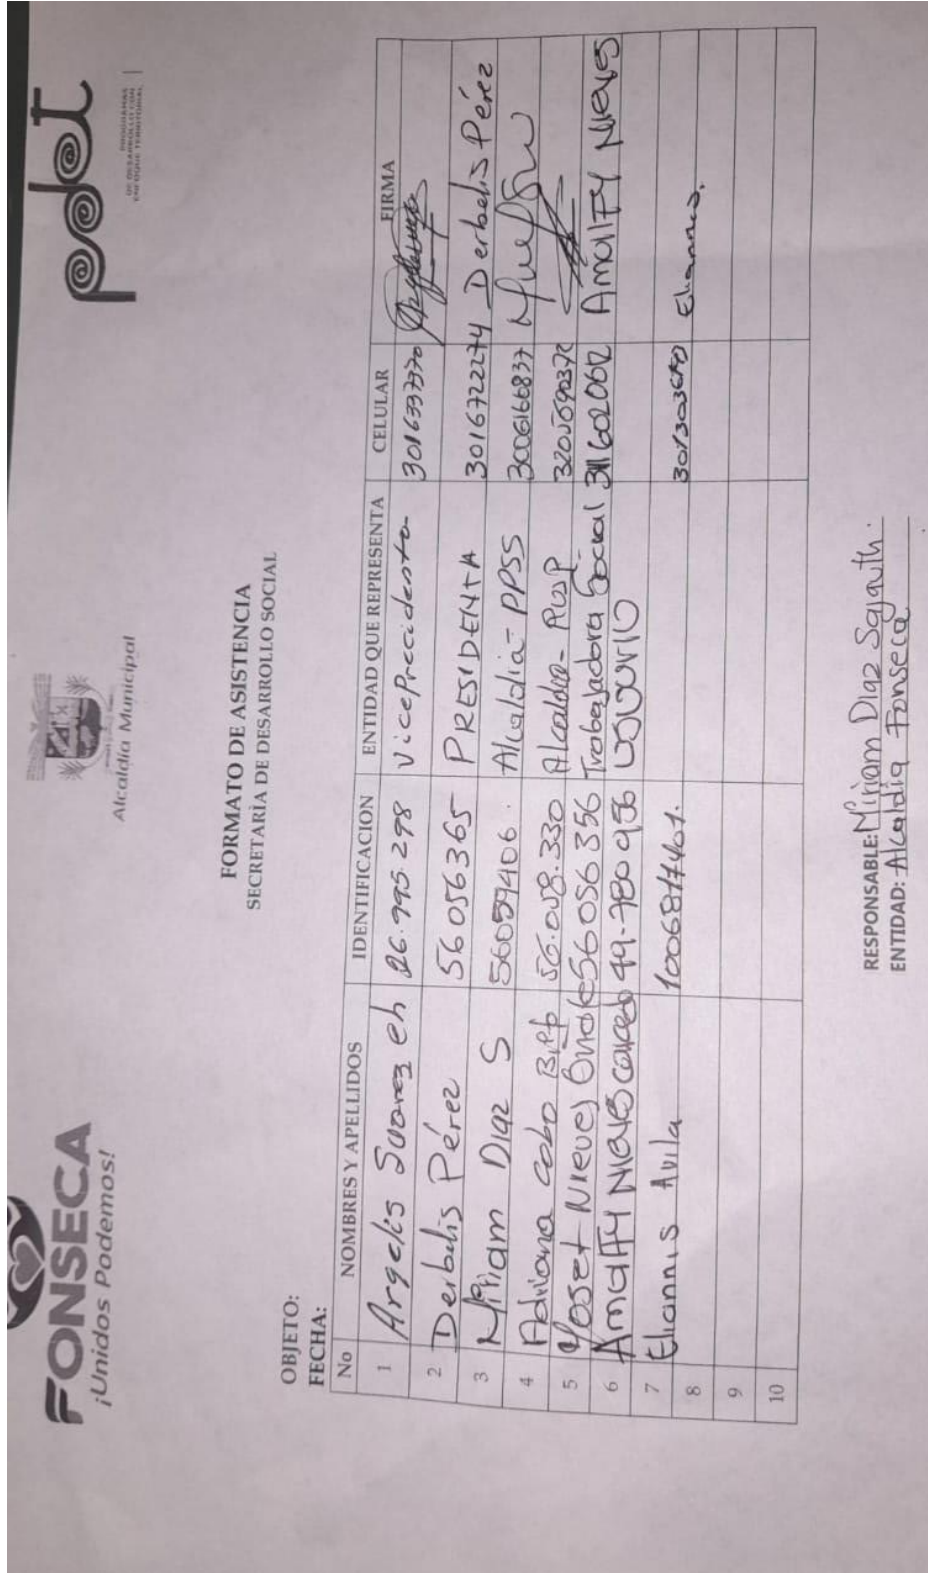 FONSECA
¡Unidos Podemos!
Alcaldía Municipal
pdet
PROGRAMAS
DE DESARROLLO CON
ENFOQUE TERRITORIAL
FORMATO DE ASISTENCIA
SECRETARÍA DE DESARROLLO SOCIAL
OBJETO:
FECHA:
No NOMBRES Y APELLIDOS IDENTIFICACION ENTIDAD QUE REPRESENTA CELULAR FIRMA
1 Argelis Suarez eh 26.995.298 vicePrecidenta
2 Derbelis Pérez 56056365 PRESIDENTA 3016722274 Derbelis Pérez
3 Miriam Diaz S 56059406. Alcaldia-PPSS 3006166837
4 Adriana Cobo 56.058.330
5 Yoset Nieves 56056356 Trabajadora Social
6 Nieves 49.780956 Nieves
7 Eliannis Avila Eliannis.
8
9
10
RESPONSABLE: Miriam Diaz
ENTIDAD: Alcaldia Fonseca